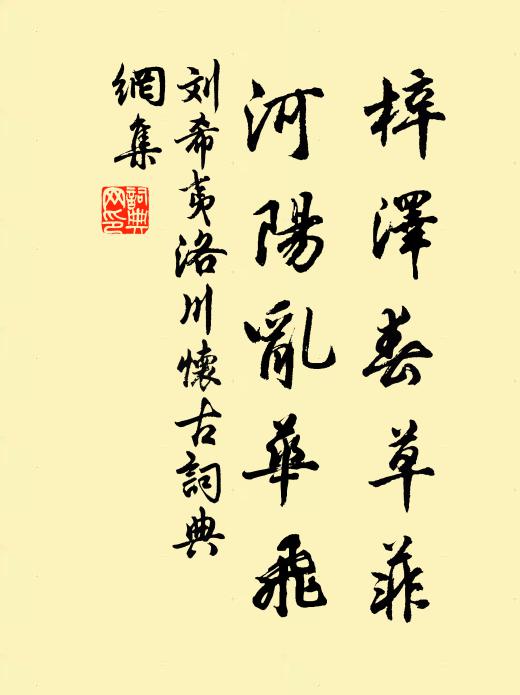 梓澤春草菲
河陽亂華飛
刘希夷洛川懷古詞典
網集
詞典
网印